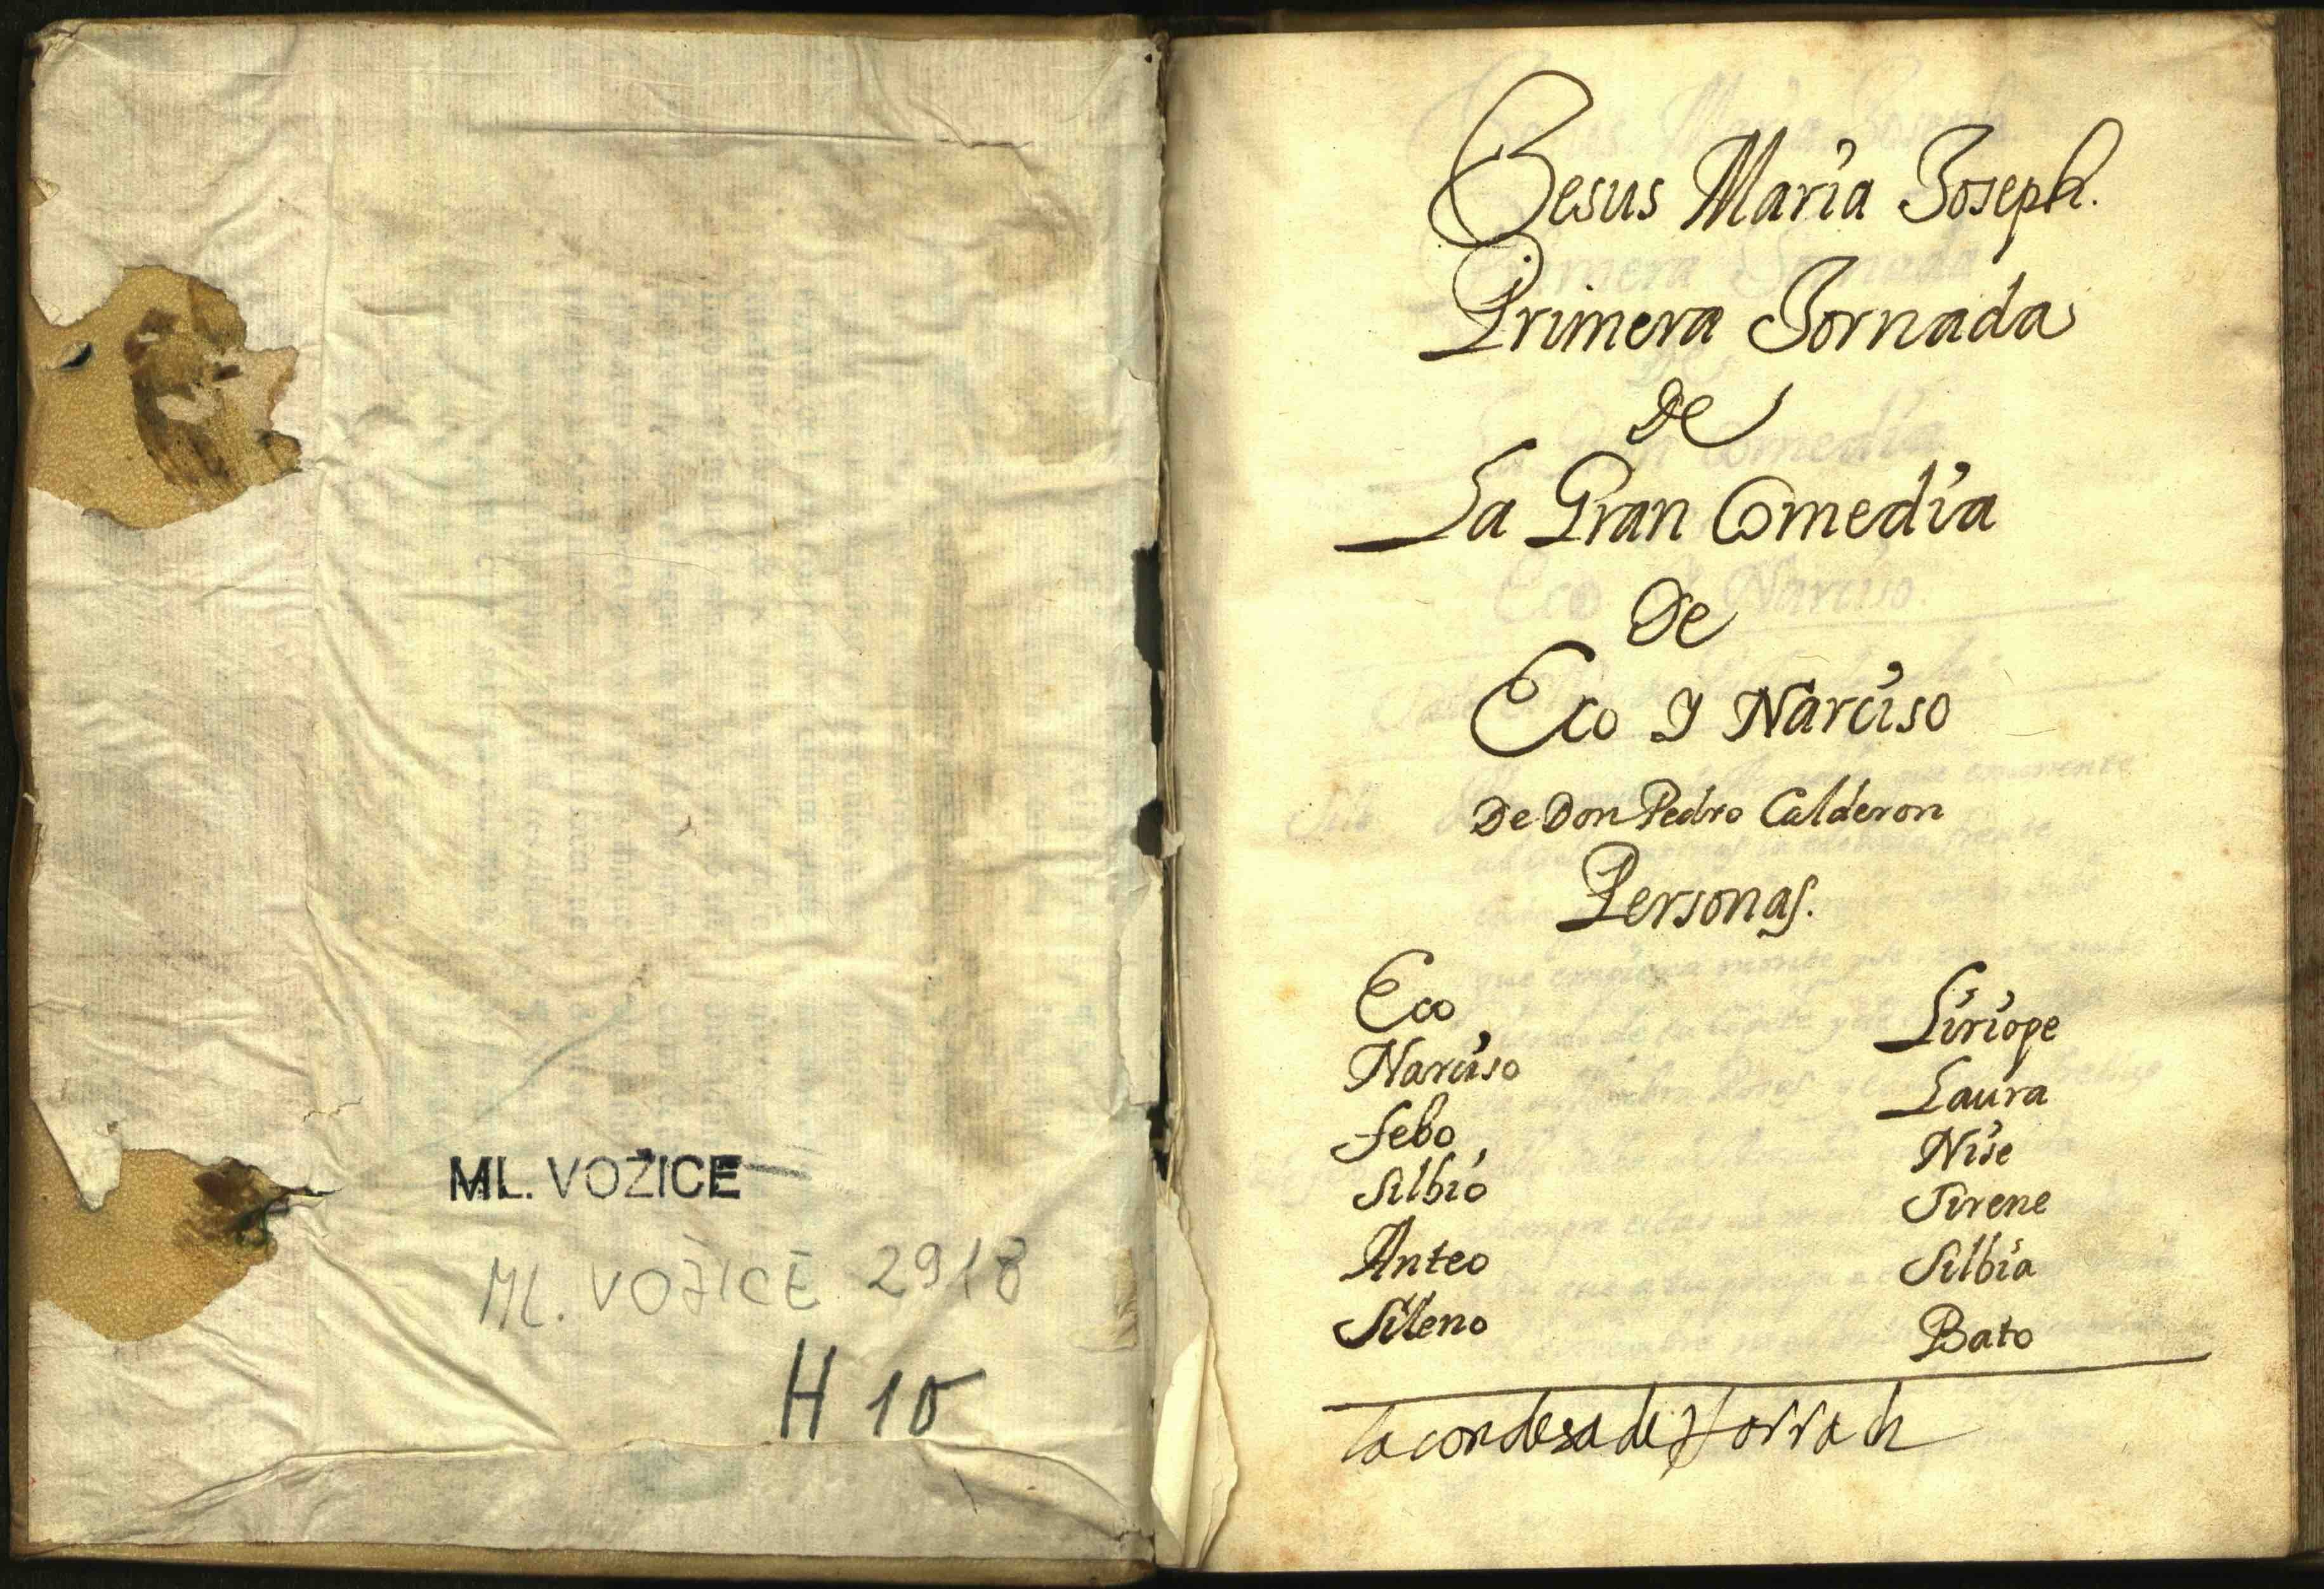 ML. VOŽICE
ML. VOŽICE 2918
H 10
Jesus Maria Joseph.
Primera Jornada
De
La Gran Comedia
De
Eco Y Narciso
De Don Pedro Calderon
Personas.
Eco
Narciso
Febo
Silbio
Anteo
Sileno
Liriope
Laura
Nise
Sirene
Silbia
Bato
la condesa de Harrach